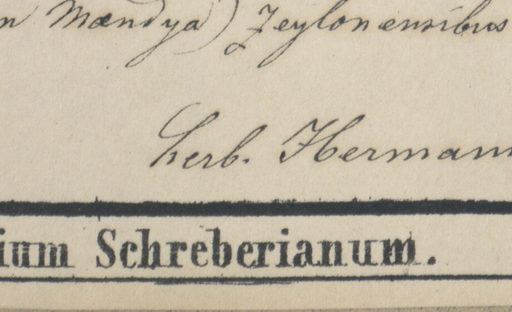 n Mændya) Zeylonensibus
herb. Hermann
ium Schreberianum.